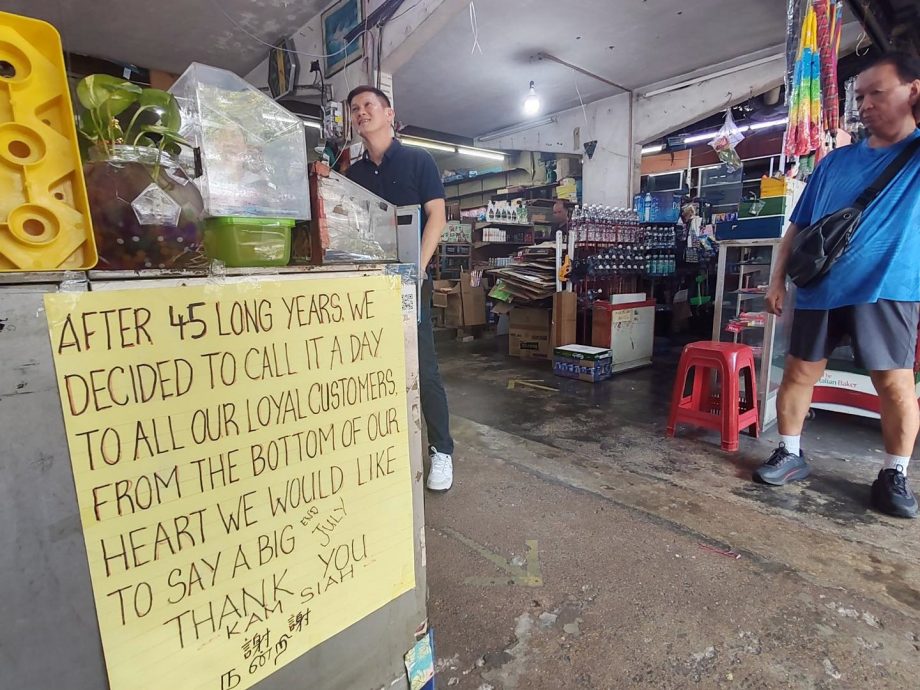 AFTER 45 LONG YEARS. WE
DECIDED TO CALL IT A DAY
TO ALL OUR LOYAL CUSTOMERS.
FROM THE BOTTOM OF OUR
HEART WE WOULD LIKE
TO SAY A BIG END JULY
THANK YOU
KAM SIAH
謝謝